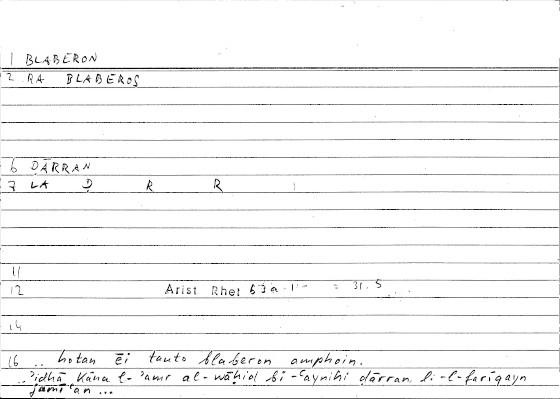 1 BLABERON
2 RA BLABEROS
6 ḌĀRRAN
7 LA Ḍ R R
11
12 Arist Rhet = 31.5
14
16 .. hotan ēi tauto blaberon amphoin.
..ʾidhā kāna l-ʾamr al-wāḥid bi-ʿaynihi ḍārran li-l-farīqayn
jamīʿan ...